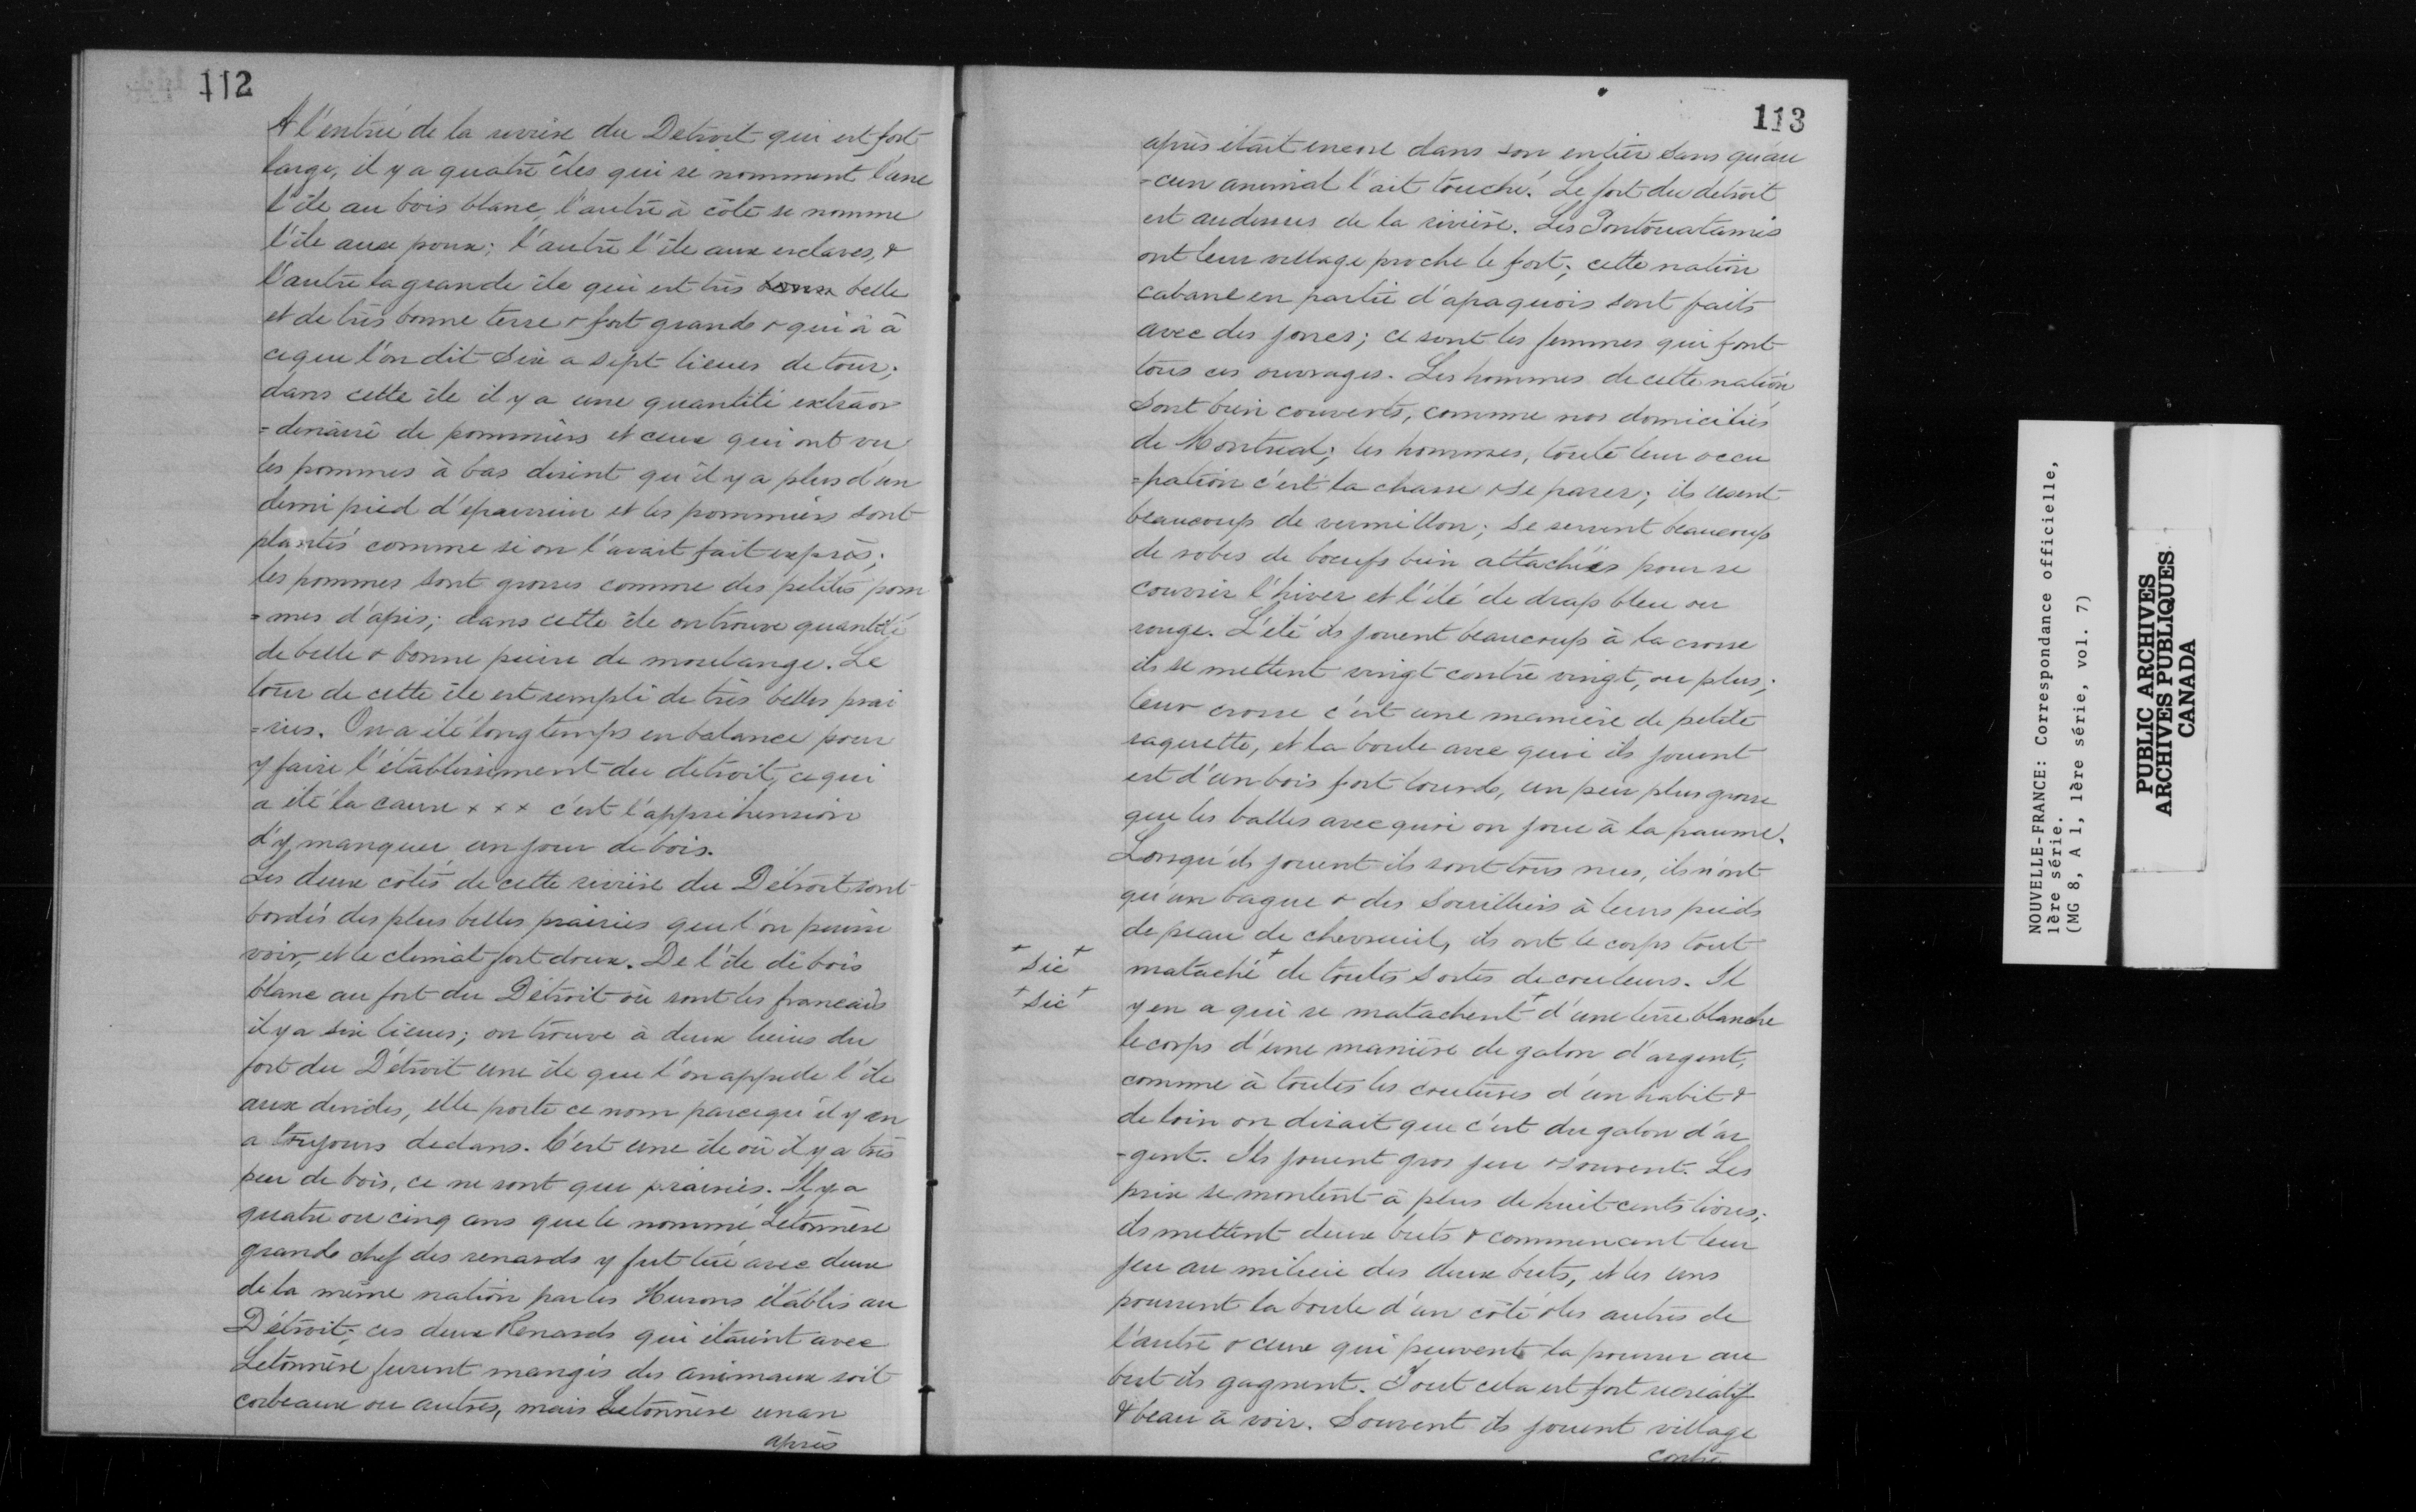 112
A l'entrée de la rivière du Detroit qui est fort
large, il y a quatre îles qui se nomment l'une
l'île au bois blanc, l'autre à côté se nomme
l'île aux poux; l'autre l'île aux esclaves, &
l'autre la grande île qui est très bonne belle
et de très bonne terre & fort grande & qui a à
ce que l'on dit six a sept lieues de tour;
dans cette île il y a une quantité extraor
=dinaire de pommiers et ceux qui ont vu
les pommes à bas disent qu'il y a plus d'un
demi pied d'épaisseur et les pommiers sont
plantés comme si on l'avait fait exprès;
les pommes sont grosses comme des petites pom
=mes d'apis; dans cette île on trouve quantité
de belle & bonne pierre de moulange. Le
tour de cette île est rempli de très belles prai
=ries. On a été longtemps en balance pour
y faire l'établissement du détroit, ce qui
a été la cause x x x c'est l'appréhension
d'y manquer un jour de bois.
Les deux côtés de cette rivière du Détroit sont
bordés des plus belles prairies que l'on puisse
voir, et le climat fort doux. De l'île de bois
blanc au fort du Détroit où sont les francais
il y a six lieues; on trouve à deux lieues du
fort du Détroit une île que l'on appelle l'île
aux dindes, elle porte ce nom parcequ'il y en
a toujours dedans. C'est une île où il y a très
peu de bois, ce ne sont que prairies. Il y a
quatre ou cinq ans que le nommé Letonnère
grand chef des renards y fut tué avec deux
de la même nation par les Hurons établis au
Détroit; ces deux Renards qui étaient avec
Letonnère furent mangés des animaux soit
corbeaux ou autres, mais Letonnère un an
après
113
après était encore dans son entier sans qu'au
=cun animal l'ait touché. Le fort du détroit
est audessus de la rivière. Les Pontouatamis
ont leur village proche le fort; cette nation
cabane en partie d'apaquois sont faits
avec des joncs; ce sont les femmes qui font
tous ces ouvrages. Les hommes de cette nation
sont bien couverts, comme nos domiciliés
de Montreal; les hommes, toute leur occu
=pation c'est la chasse & se parer; ils usent
beaucoup de vermillon; se servent beaucoup
de robes de boeufs bien attachées pour se
couvrir l'hiver et l'été de drap bleu ou
rouge. L'été ils jouent beaucoup à la crosse
ils se mettent vingt contre vingt, ou plus;
leur crosse c'est une manière de petite
raquette, et la boule avec quoi ils jouent
est d'un bois fort lourd, un peu plus grosse
que les balles avec quoi on joue à la paume.
Lorsqu'ils jouent ils sont tous nus, ils n'ont
qu'un bague & des souilliers à leurs pieds
de peau de chevreuil, ils ont le corps tout
+ sic + mataché + de toutes sortes de couleurs. Il
+ sic + y en a qui se matachent + d'une terre blanche
le corps d'une manière de galon d'argent,
comme à toutes les coutures d'un habit &
de loin on dirait que c'est du galon d'ar
-gent. Ils jouent gros jeu & souvent. Les
prix se montent à plus de huit cents livres;
ils mettent deux buts & commencent leur
jeu au milieu des deux buts, et les uns
poussent la boule d'un côté & les autres de
l'autre & ceux qui peuvent la pousser au
but ils gagnent. Tout cela est fort récréatif
& beau à voir. Souvent ils jouent village
contre
NOUVELLE-FRANCE: Correspondance officielle,
1ère série.
(MG 8, A 1, 1ère série, vol. 7)
PUBLIC ARCHIVES
ARCHIVES PUBLIQUES
CANADA